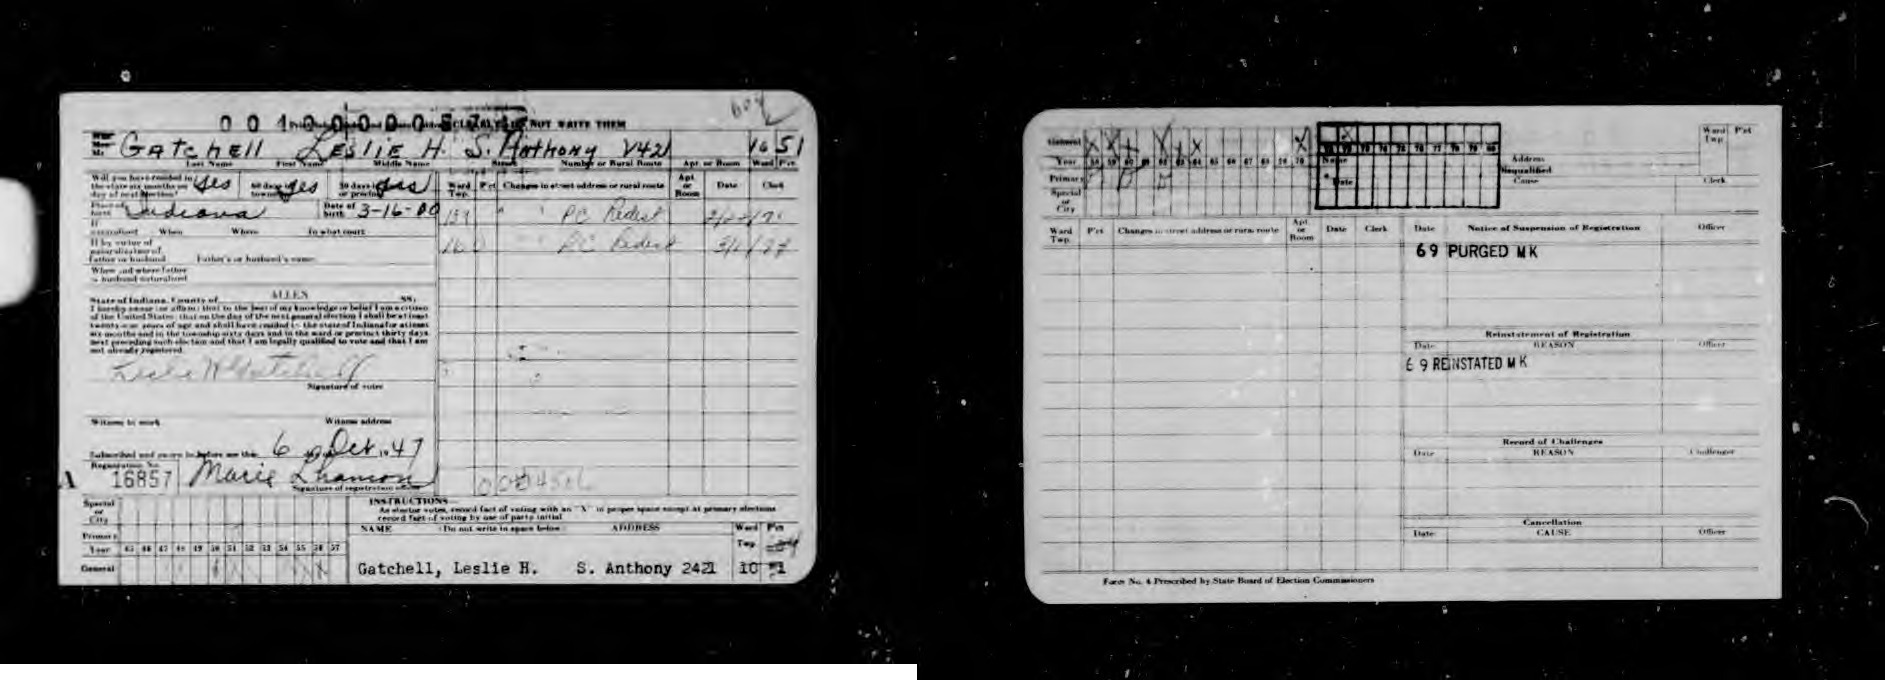 CLEARLY NOT WRITE THEM
GATCHELL LESLIE H. S. Anthony 2421 10 51
Last Name First Name Middle Name Street Number or Rural Route Apt. or Room Ward Pct.
Will you have resided in the state six months on day of next election? Yes 60 days in township Yes 30 days in precinct Yes
Ward Twp. Pct Changes in street address or rural route Apt. or Room Date Clerk
Place of birth Indiana Date of birth 3-16-00
PC Redist
If naturalized When Where In what court
PC Redist
If by virtue of naturalization of father or husband Father's or husband's name
When and where father or husband naturalized
State of Indiana, County of ALLEN SS:
I hereby swear (or affirm) that to the best of my knowledge or belief I am a citizen
of the United States; that on the day of the next general election I shall be at least
twenty-one years of age and shall have resided in the state of Indiana for at least
six months and in the township sixty days and in the ward or precinct thirty days
next preceding such election and that I am legally qualified to vote and that I am
not already registered.
Leslie H Gatchell
Signature of voter
Witness to mark Witness address
Subscribed and sworn to before me this 6 day of Oct 1947
Registration No.
A 16857 Marie
Signature of registration
Special or City
Primary
Year 45 46 47 48 49 50 51 52 53 54 55 56 57
General
INSTRUCTIONS
As elector votes, record fact of voting with an "X" in proper space except at primary elections
record fact of voting by use of party initial.
NAME (Do not write in space below) ADDRESS Ward Twp. Pct
Gatchell, Leslie H. S. Anthony 2421 10
General
Year 58 59 60 61 62 63 64 65 66 67 68 69 70 71 72 73 74 75 76 77 78 79 80
Primary
Special or City
Name
Date
Address
Disqualified
Cause
Clerk
Ward Twp. Pct
Ward Twp. Pct Changes in street address or rural route Apt. or Room Date Clerk Date Notice of Suspension of Registration Officer
69 PURGED MK
Reinstatement of Registration
Date REASON Officer
69 REINSTATED MK
Record of Challenges
Date REASON Challenger
Cancellation
Date CAUSE Officer
Form No. 4 Prescribed by State Board of Election Commissioners